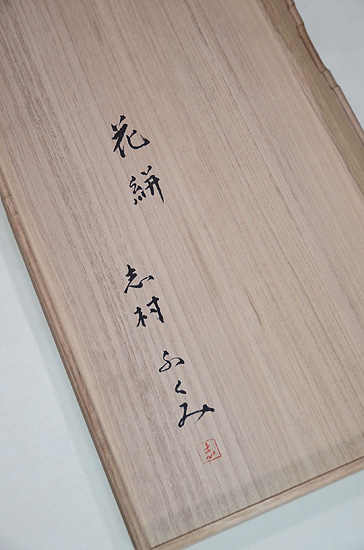 花絣
志村ふくみ
志